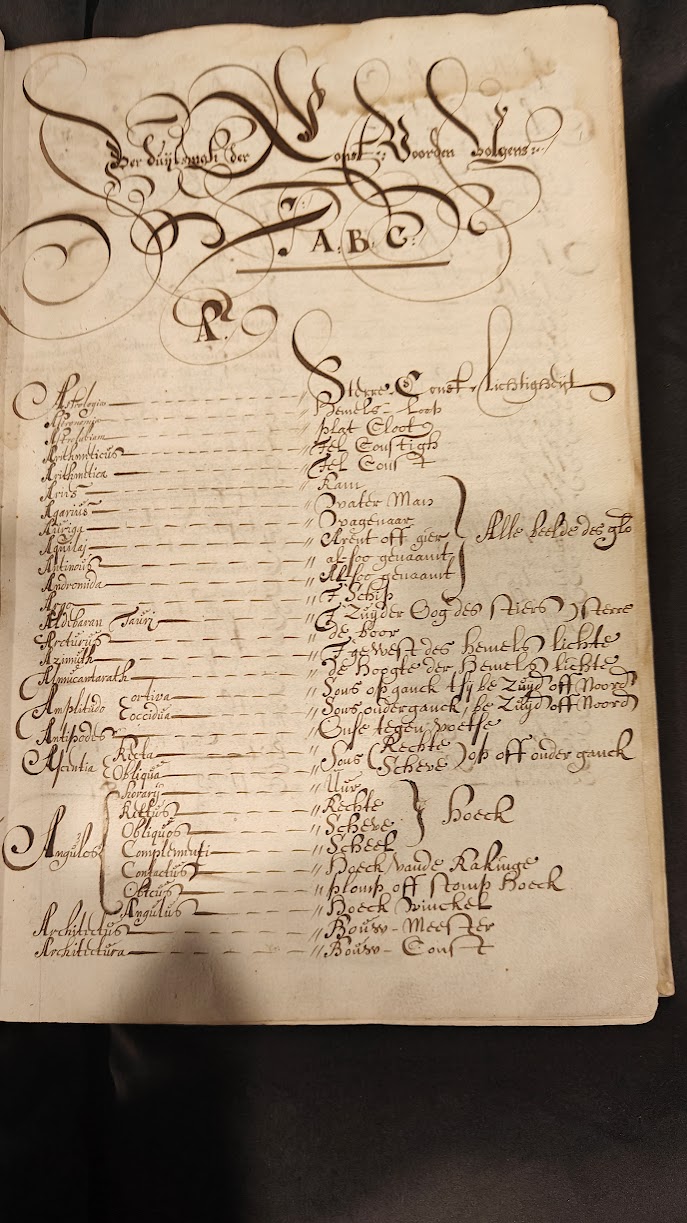 Verduijtingh der Const-Woorden Volgens
'T A. B. C.
A.
Astrologia // Sterre-Const, lichtigheijt
Astronomia // Hemels-loop
Astrolabium // plat Cloot
Arithmeticus // Tel Constigh
Arithmetica // Tel Const
Aries // Ram
Aqarius // Water Man
Auriga // Wagenaar
Aquilaj // Arent off gier
Antinous // alsoo genaamt
Andromida // Alsoo genaamt
Alle beelde des glo
Argo // T Schip
Aldebaran Tauri // T Zuyder Oog des stiers) sterre
Arcturus // de boor
Azimuth // T gewest des hemels lichte
Almucantarath // de Hoogte der Hemels lichte
Amplitudo ortiva // Sons op ganck tsij be Zuijd off Noord
occidua // Sons onderganck, be Zuijd off Noord
Antipodes // Onse tegen voetse
Ascentia Recta // Sons (Rechte
Obliqua // Scheve) op off onder ganck
Angulos horarij // Uur
Rectus // Rechte
Obliquos // Scheve
hoeck
Complementi // Scheel
Contactus // Hoeck vande Rakinge
Obtcus // plomp off stomp Hoeck
Angulus // Hoeck Winckel
Architectus // Bouw-Meester
Architectura // Bouw-Const